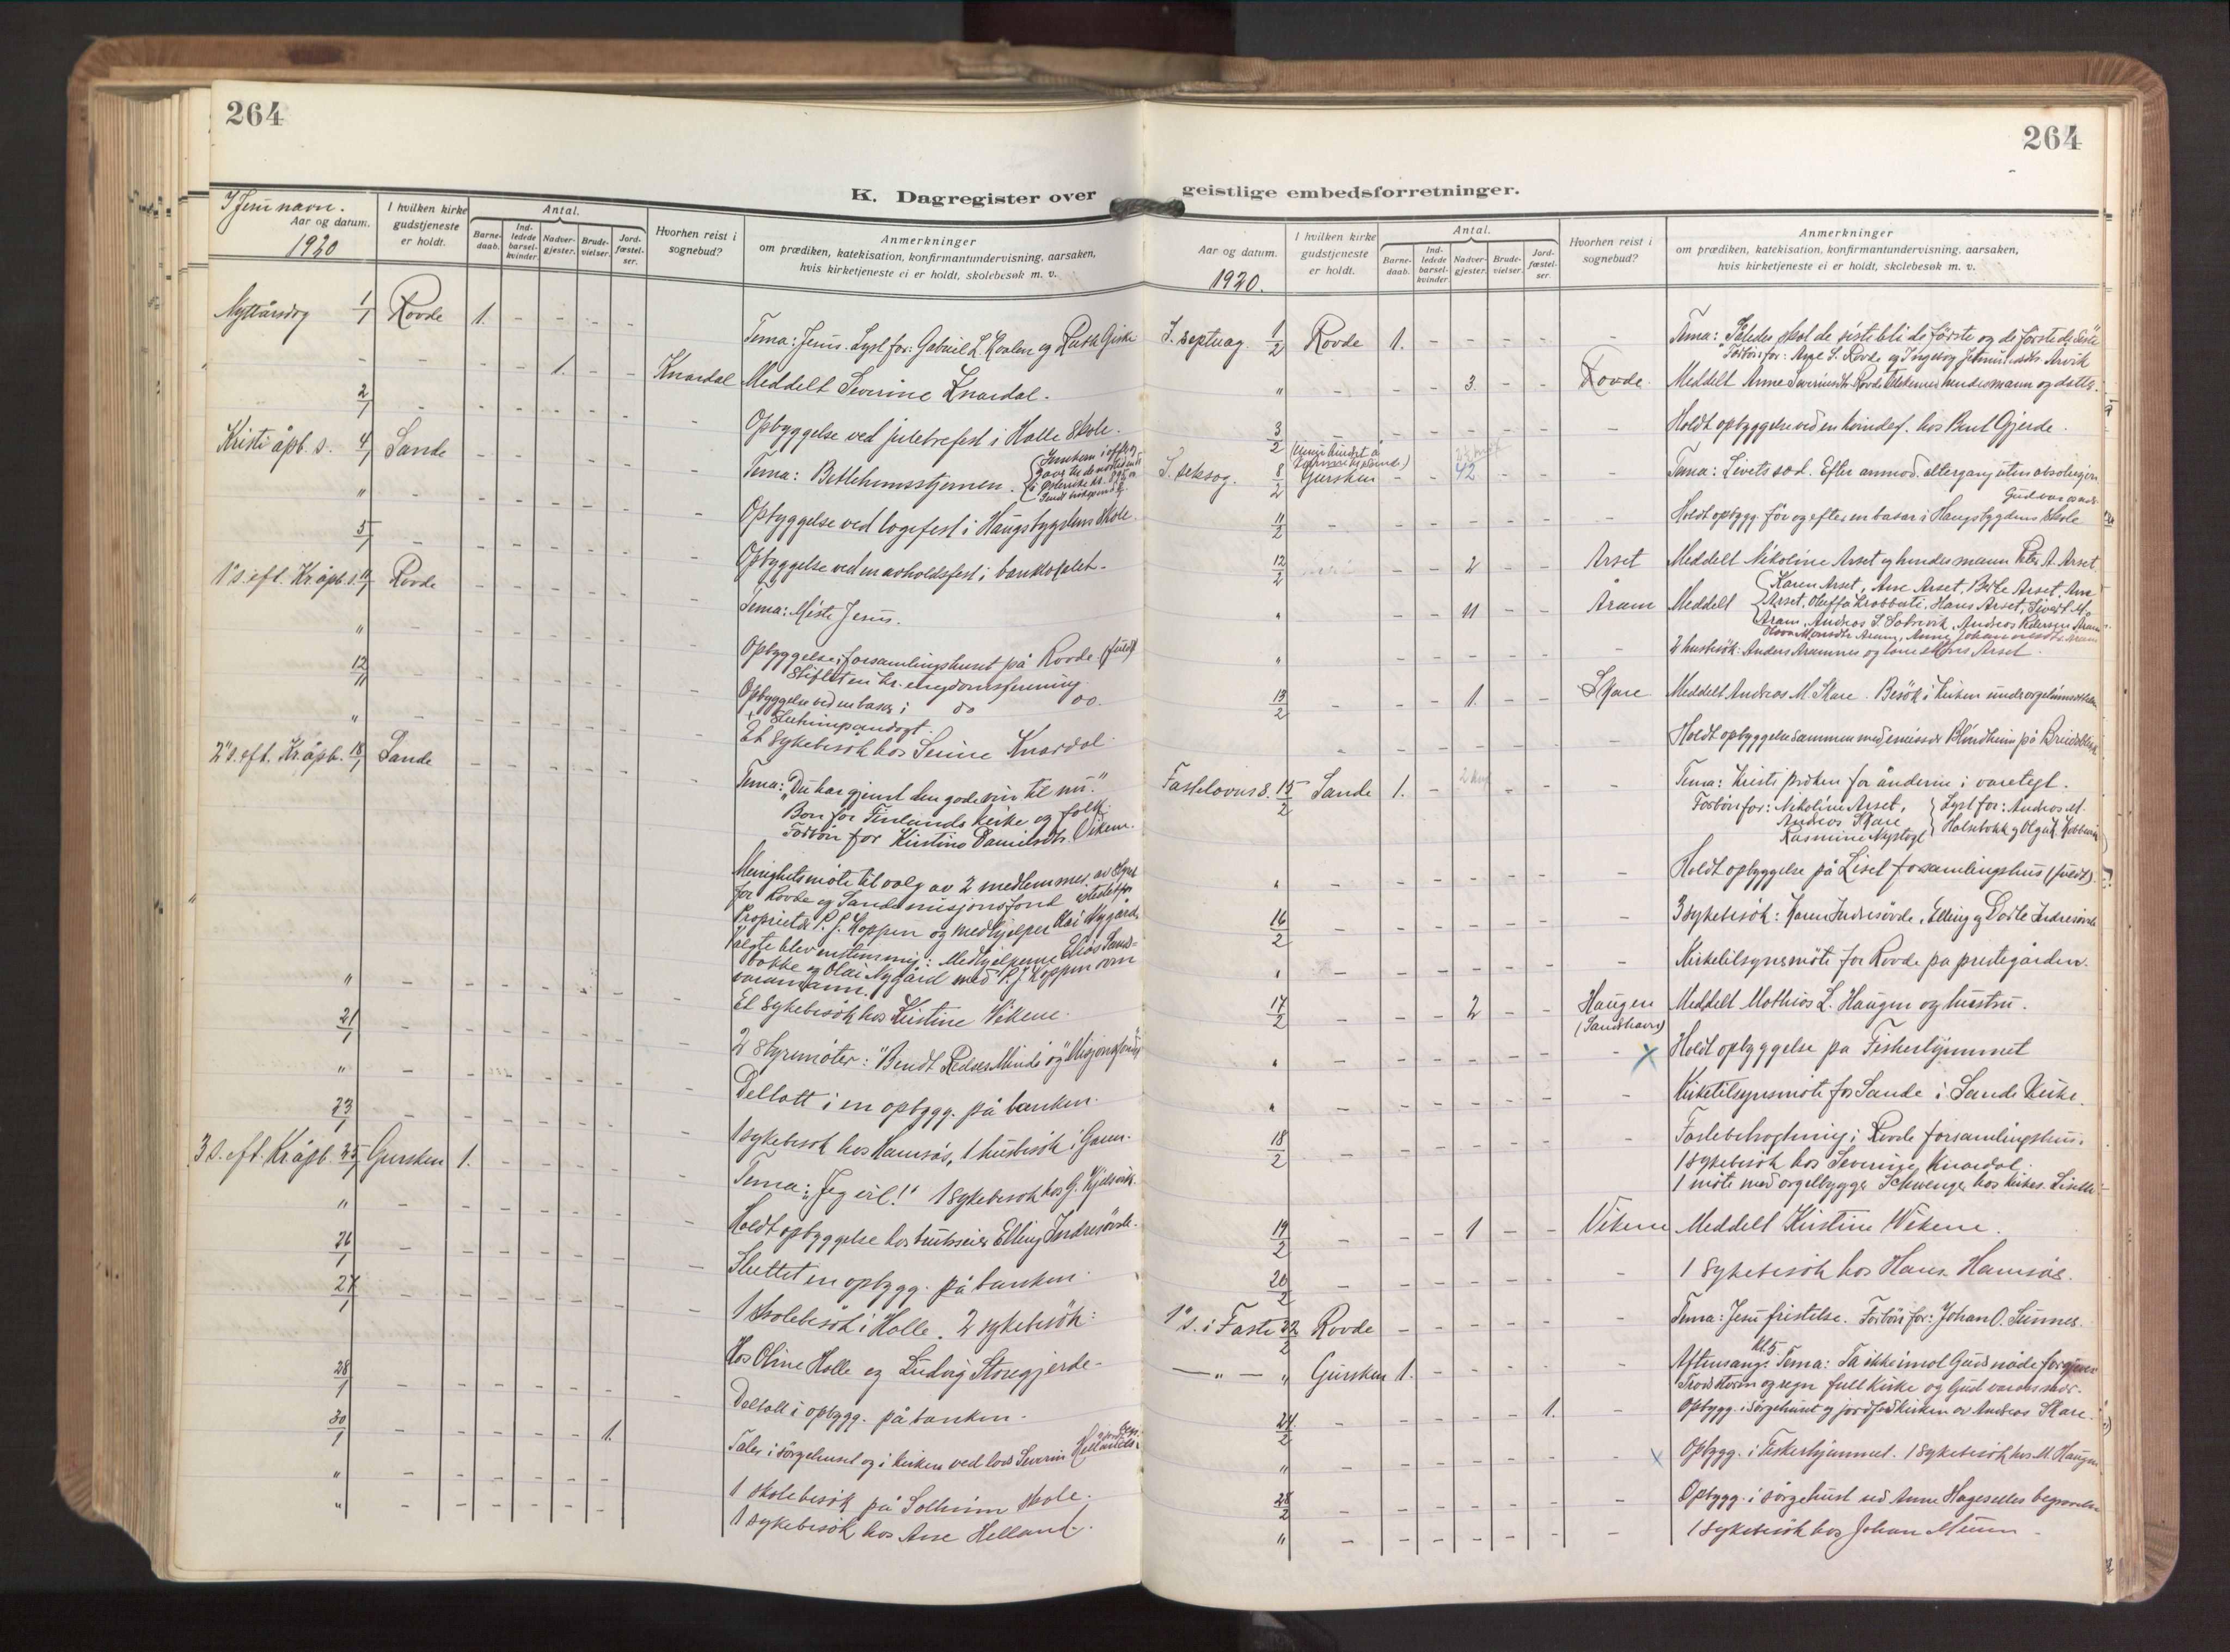 264
264
K. Dagregister over
geistlige embedsforretninger.
I Jesu navn.
Aar og datum.
1920
I hvilken kirke gudstjeneste er holdt.
Antal.
Barne-daab.
Ind-ledede barsel-kvinder.
Nadver-gjester.
Brude-vielser.
Jord-fæstel-ser.
Hvorhen reist i sognebud?
Anmerkninger
om prædiken, katekisation, konfirmantundervisning, aarsaken,
hvis kirketjeneste ei er holdt, skolebesøk m. v.
Nyttårsdag 1/1 Rovde 1. - - - - Tema: Jesus. Lyst for: Gabriel L. Koalen og Ruth Giske
" - - - 1. - - Knardal Meddelt Severine Knardal.
2/1 - - - - - - - Opbyggelse ved juletrefest i Halle skole.
Kristi åpb. s. 4/1 Sande - - - - - - Tema: Betlehemsstjernen.
" - - - - - - - Opbyggelse ved logefest i Haugsbygdens skole.
5/1 - - - - - - - Opbyggelse ved en avholdsfest i banklokalet.
1' s. eft. Kr. åpb. s. 11/1 Rovde - - - - - - Tema: Miste Jesus.
" - - - - - - Opbyggelse i forsamlingshuset på Rovde (fuldt)
Stiftet en kr. ungdomsforening.
12/1 - - - - - - Opbyggelse ved en basar i do do.
Et sykebesøk hos Severine Knardal
2' s. eft. Kr. åpb. 18/1 Sande - - - - - - Tema: "Du har gjemt den gode vin til nu."
Bøn for Finlands kirke og folk.
Forbøn for Kirstine Danielsdtr. Vikene.
" Menighetsmøte til valg av 2 medlemmer av styret
for Rovde og Sande misjonsfond istedetfor
Proprietær P. J. Koppen og medhjelper Olai Nygård.
Valgte blev enstemmig: Medhjelperne Elias Sand-
bakke og Olai Nygård med P. J. Koppen som
varamann.
" - - - - - - Et sykebesøk hos Kirstine Vikene.
21/1 - - - - - - 2 styremøter: "Bendt Redes Minde" og "Misjonsfondet"
" - - - - - - Deltatt i en opbygg. på banken.
23/1 - - - - - - 1 sykebesøk hos Hamsås, 1 husbesøk i Garen.
3 s. eft. Kr. åpb. 25/1 Gursken 1. - - - - - Tema: "Jeg vil!" 1 sykebesøk hos G. Kjelsvik.
" - - - - - - Holdt opbyggelse hos bruksseier Elling Indresøvde.
26/1 - - - - - - Sluttet en opbygg. på banken.
27/1 - - - - - - 1 skolebesøk i Halle. 2 sykebesøk:
Hos Oline Halle og Ludvig Storegjerde.
28/1 - - - - - - Deltatt i opbygg. på banken.
30/1 - - - - - 1. Taler i sørgehuset og i kirken ved lods Severin Hellands
" - - - - - - 1 skolebesøk på Solheim skole.
" - - - - - - 1 sykebesøk hos Ane Helland.
Aar og datum.
1920.
I hvilken kirke gudstjeneste er holdt.
Antal.
Barne-daab.
Ind-ledede barsel-kvinder
Nadver-gjester.
Brude-vielser.
Jord-fæstel-ser.
Hvorhen reist i sognebud?
Anmerkninger
om prædiken, katekisation, konfirmantundervisning, aarsaken,
hvis kirketjeneste ei er holdt, skolebesøk m. v.
S. septuag. 1/2 Rovde 1. - - - - - Tema: Således skal de siste bli de første og de første de siste
" - - - 3. - - Rovde. Meddelt Anne Severinsdtr. Rovde tillikemed hendes mann og datter.
3/2 - - - - - - - Holdt opbyggelse ved en kvindef. hos Paul Gjerde.
S. seksag. 8/2 Gursken - - 42 - - - Tema: Livets sæd. Efter anmod. altergang uten absolusjon
Gud var os nær.
11/2 - - - - - - - Holdt opbygg. før og efter en basar i Haugsbygdens skole
12/2 - - 2 - - Arset Meddelt Nikoline Arset og hendes mann Peter A. Arset.
" - - 11 - - Åram Meddelt Karen Arset, Ane Arset, Berte Arset, Ane
Arset, Oluffa Krobbesti, Hans Arset, Sivert M.
Åram, Andreas S. Sætrevik, Andreas Pedersen Åram
" - - - - - - 2 husbesøk: Anders Aramnes og
13/2 - - - 1. - - Skare Meddelt Andreas M. Skare. Besøk i kirken
" - - - - - - Holdt opbyggelse sammen med emissær Blindheim på
Fastelavns s. 15/2 Sande 1. - - - - Tema: Kristi prøken for ånderne i varetegt.
Forbøn for: Nikoline Arset,
Andreas Skare
Rasmine Nystøyl
Lyst for: Andreas M.
" - - - - - - - Holdt opbyggelse på Liset forsamlingshus (fuldt).
16/2 - - - - - - - 3 sykebesøk: Karen Indresøvde, Elling og Dorte Indresøvde
" - - - - - - - Kirketilsynsmøte for Rovde på prestegården.
17/2 - - - 2 - - Haugen (Sandshavn) Meddelt Mathias L. Haugen og hustru.
" - - - - - - - x Holdt opbyggelse på Fiskerhjemmet
" - - - - - - - Kirketilsynsmøte for Sande i Sande kirke.
18/2 - - - - - - - Fastebetragtning i Rovde forsamlingshus.
1 sykebesøk hos Severine Knardal.
1 møte med orgelbygger Schwenger hos kirkes.
19/2 - - - 1 - - Vikene Meddelt Kirstine Vikene.
20/2 - - - - - - - 1 sykebesøk hos Hans Hamsås.
1' s. i Faste 22/2 Rovde - - - - - - Tema: Jesu fristelse. Forbøn for: Johan O. Sunnes.
— " — " Gursken 1. - - - - - Aftensang kl. 5. Tema: Ta ikke imot Guds nåde forgjeves
Trods storm og regn full kirke og Gud var oss nær.
24/2 - - - - - 1. - Opbygg. i sørgehuset og jordf. ved kirken av Andreas Skare.
" - - - - - - - x Opbygg. i Fiskerhjemmet. 1 sykebesøk hos M. Haugen
28/2 - - - - - - - Opbygg. i sørgehuset ved Anne Hageselles begravelse
" - - - - - - - 1 sykebesøk hos Johan